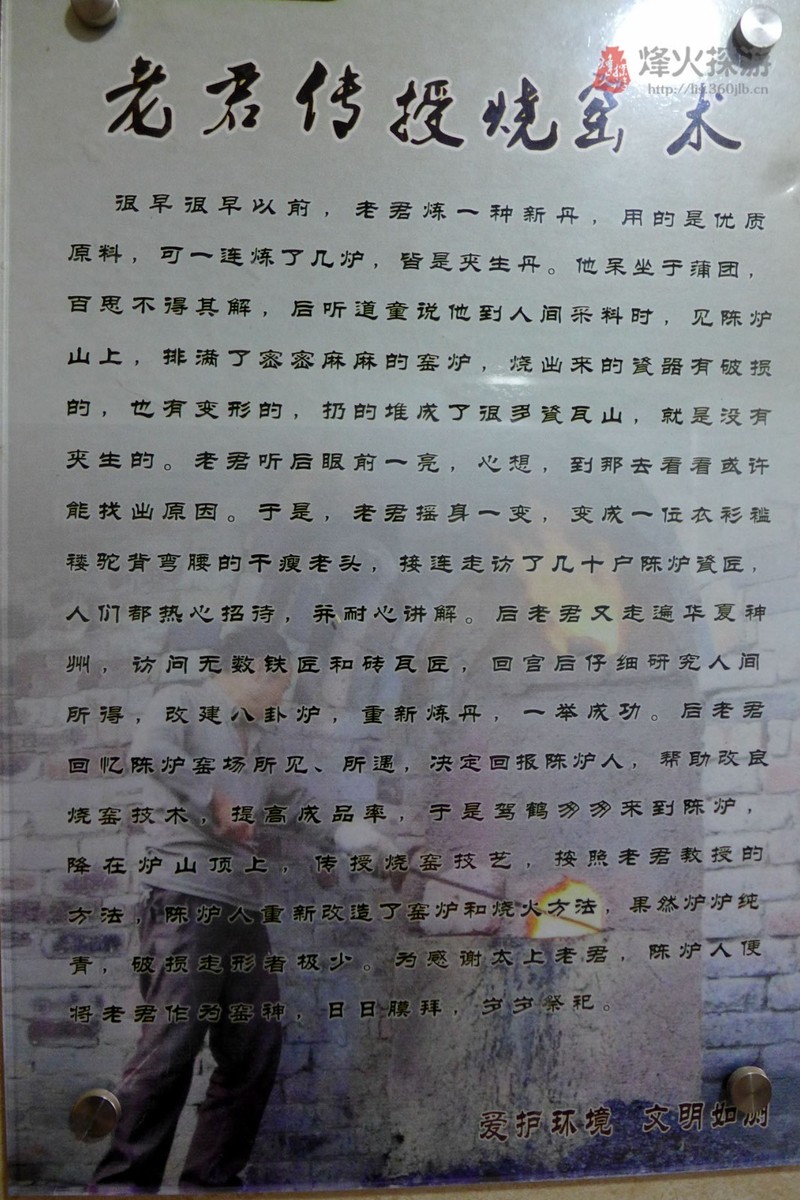 烽火探游
http://lis.360jlb.cn
老君传授烧窑术
很早很早以前，老君炼一种新丹，用的是优质
原料，可一连炼了几炉，皆是夹生丹。他呆坐于蒲团，
百思不得其解，后听道童说他到人间采料时，见陈炉
山上，排满了密密麻麻的窑炉，烧出来的瓷器有破损
的，也有变形的，扔的堆成了很多瓷瓦山，就是没有
夹生的。老君听后眼前一亮，心想，到那去看看或许
能找出原因。于是，老君摇身一变，变成一位衣衫褴
褛驼背弯腰的干瘦老头，接连走访了几十户陈炉瓷匠，
人们都热心招待，并耐心讲解。后老君又走遍华夏神
州，访问无数铁匠和砖瓦匠，回宫后仔细研究人间
所得，改建八卦炉，重新炼丹，一举成功。后老君
回忆陈炉窑场所见、所遇，决定回报陈炉人，帮助改良
烧窑技术，提高成品率，于是驾鹤匆匆来到陈炉，
降在炉山顶上，传授烧窑技艺，按照老君教授的
方法，陈炉人重新改造了窑炉和烧火方法，果然炉炉纯
青，破损走形者极少。为感谢太上老君，陈炉人便
将老君作为窑神，日日膜拜，岁岁祭祀。
爱护环境 文明如厕